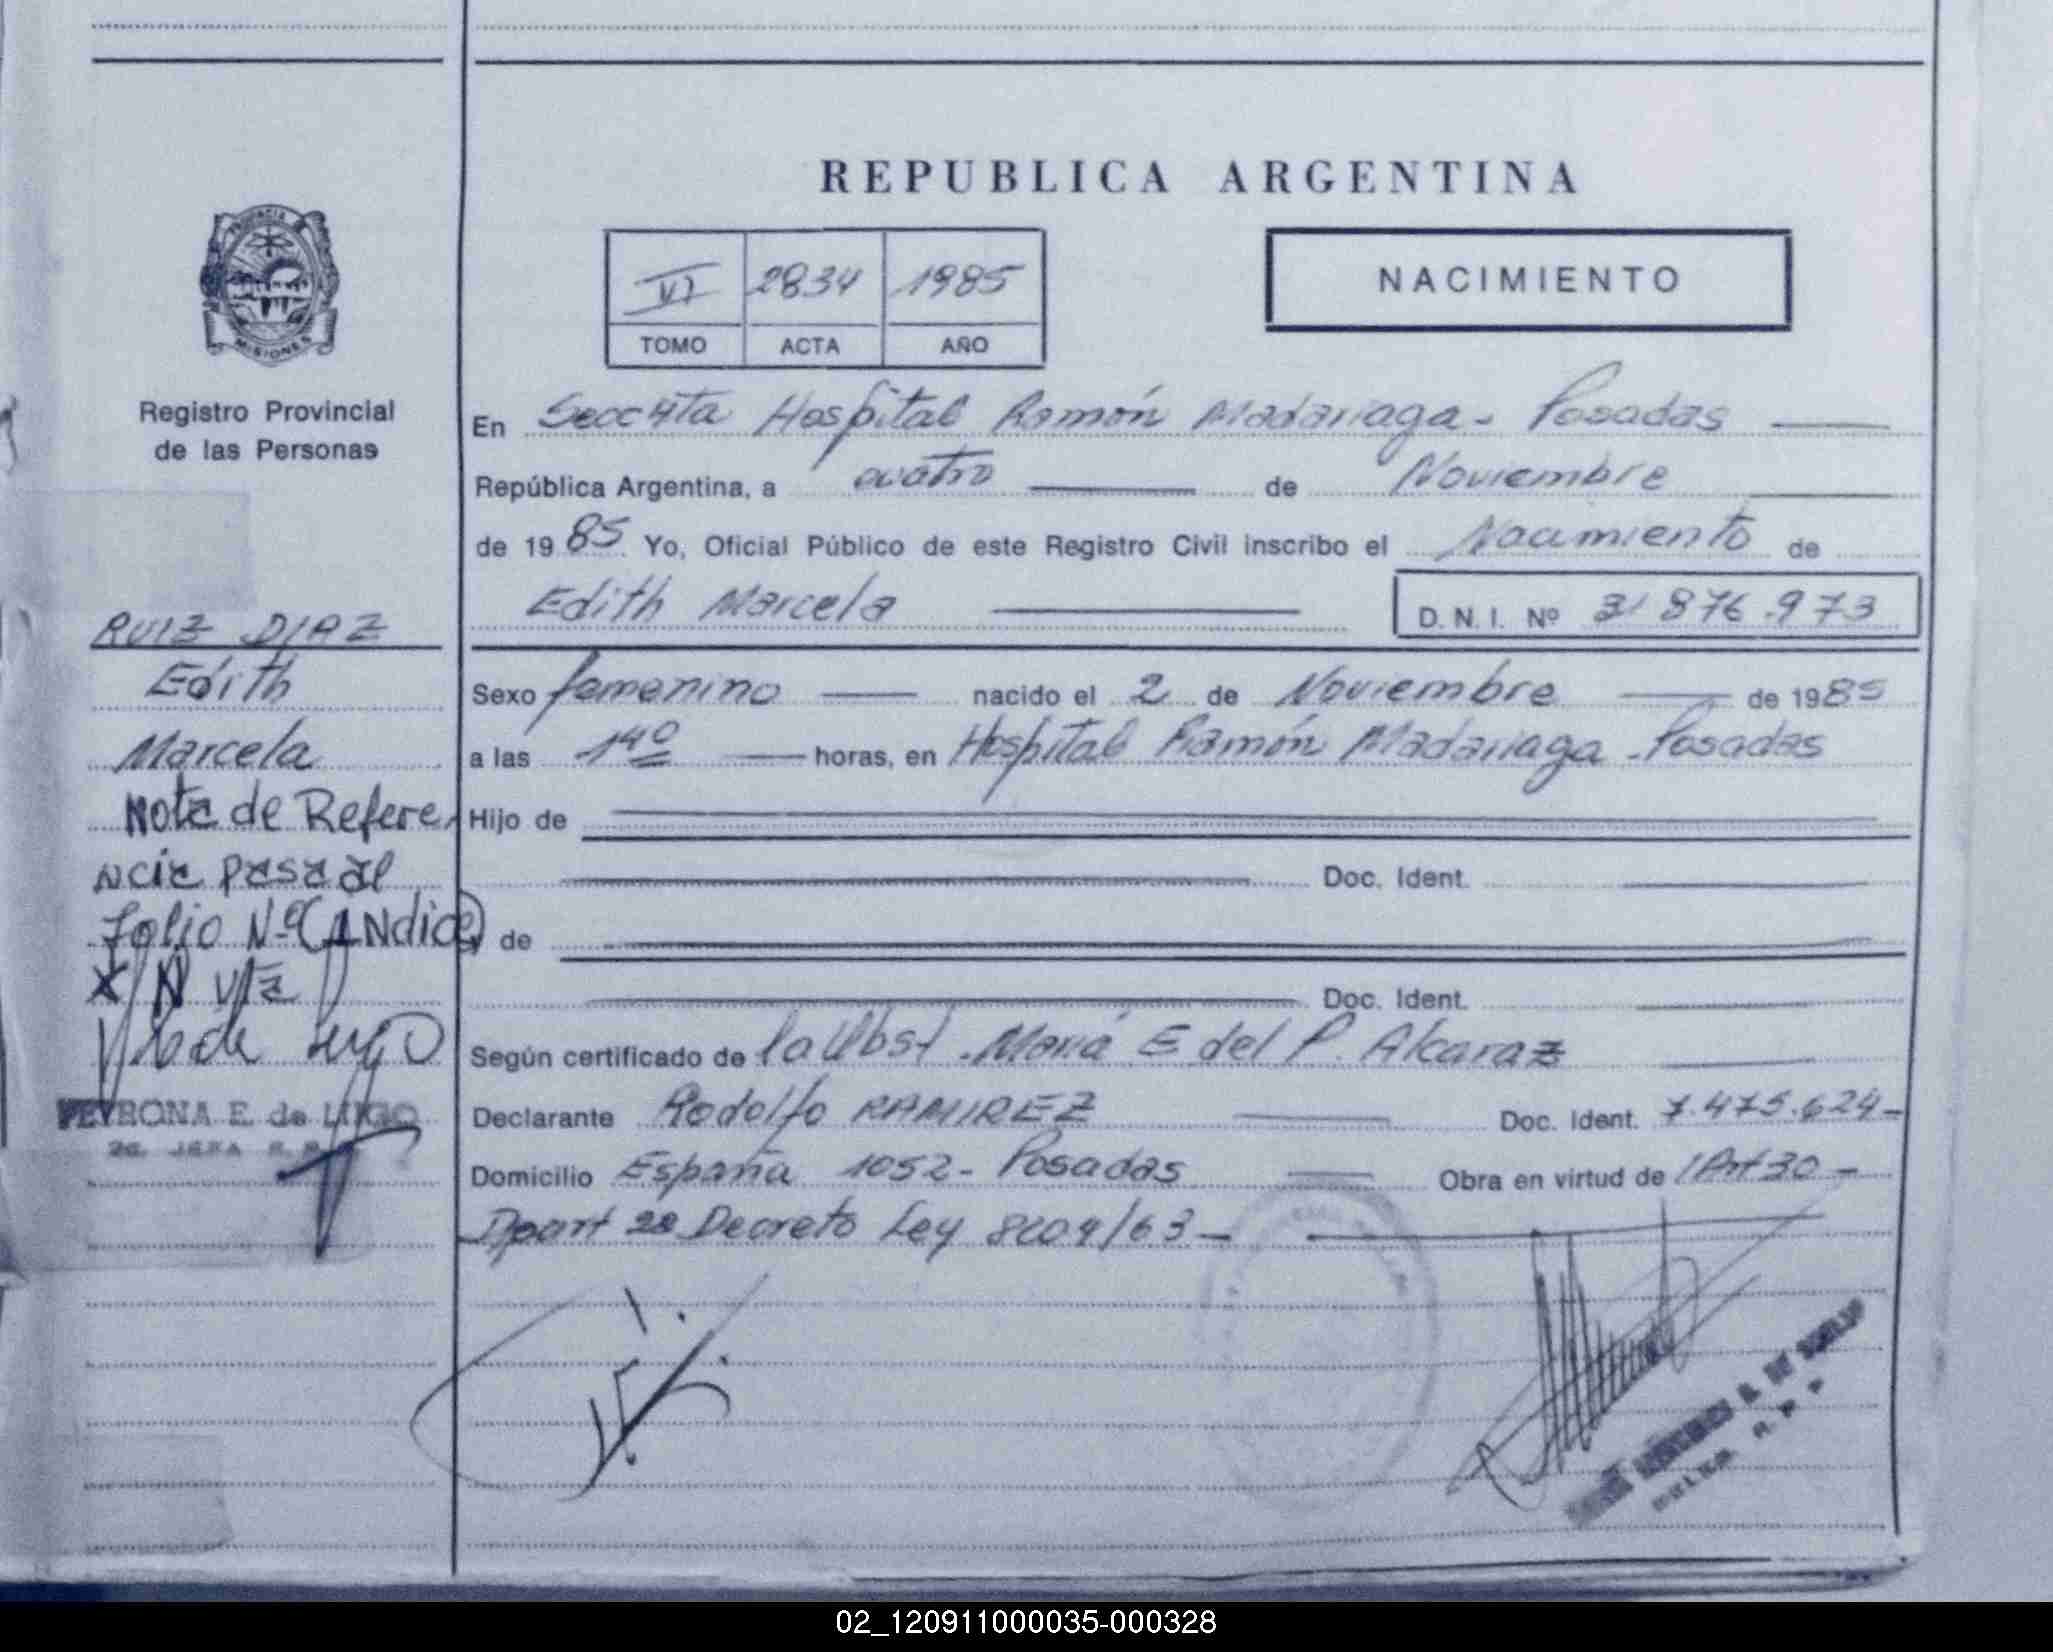 REPUBLICA ARGENTINA
PROVINCIA DE
MISIONES
Registro Provincial
de las Personas
VI 2834 1985
TOMO ACTA AÑO
NACIMIENTO
En Secc 4ta Hospital Ramón Madariaga - Posadas
República Argentina, a cuatro de Noviembre
de 1985 Yo, Oficial Público de este Registro Civil inscribo el Nacimiento de
Edith Marcela D. N. I. Nº 31 876.973
RUIZ DIAZ
Edith
Marcela
Nota de Refere
ncia pasa al
Folio Nº (Andice)
PETRONA E. de LUGO
Sexo femenino nacido el 2 de Noviembre de 1985
a las 14º horas, en Hospital Ramón Madariaga - Posadas
Hijo de
Doc. Ident.
y de
Doc. Ident.
Según certificado de la Obst. María E del P. Alcaraz
Declarante Rodolfo RAMIREZ Doc. Ident. 7.475.624-
Domicilio España 1052 - Posadas Obra en virtud de Art 30 -
Decreto Ley 8204/63 -
02_120911000035-000328